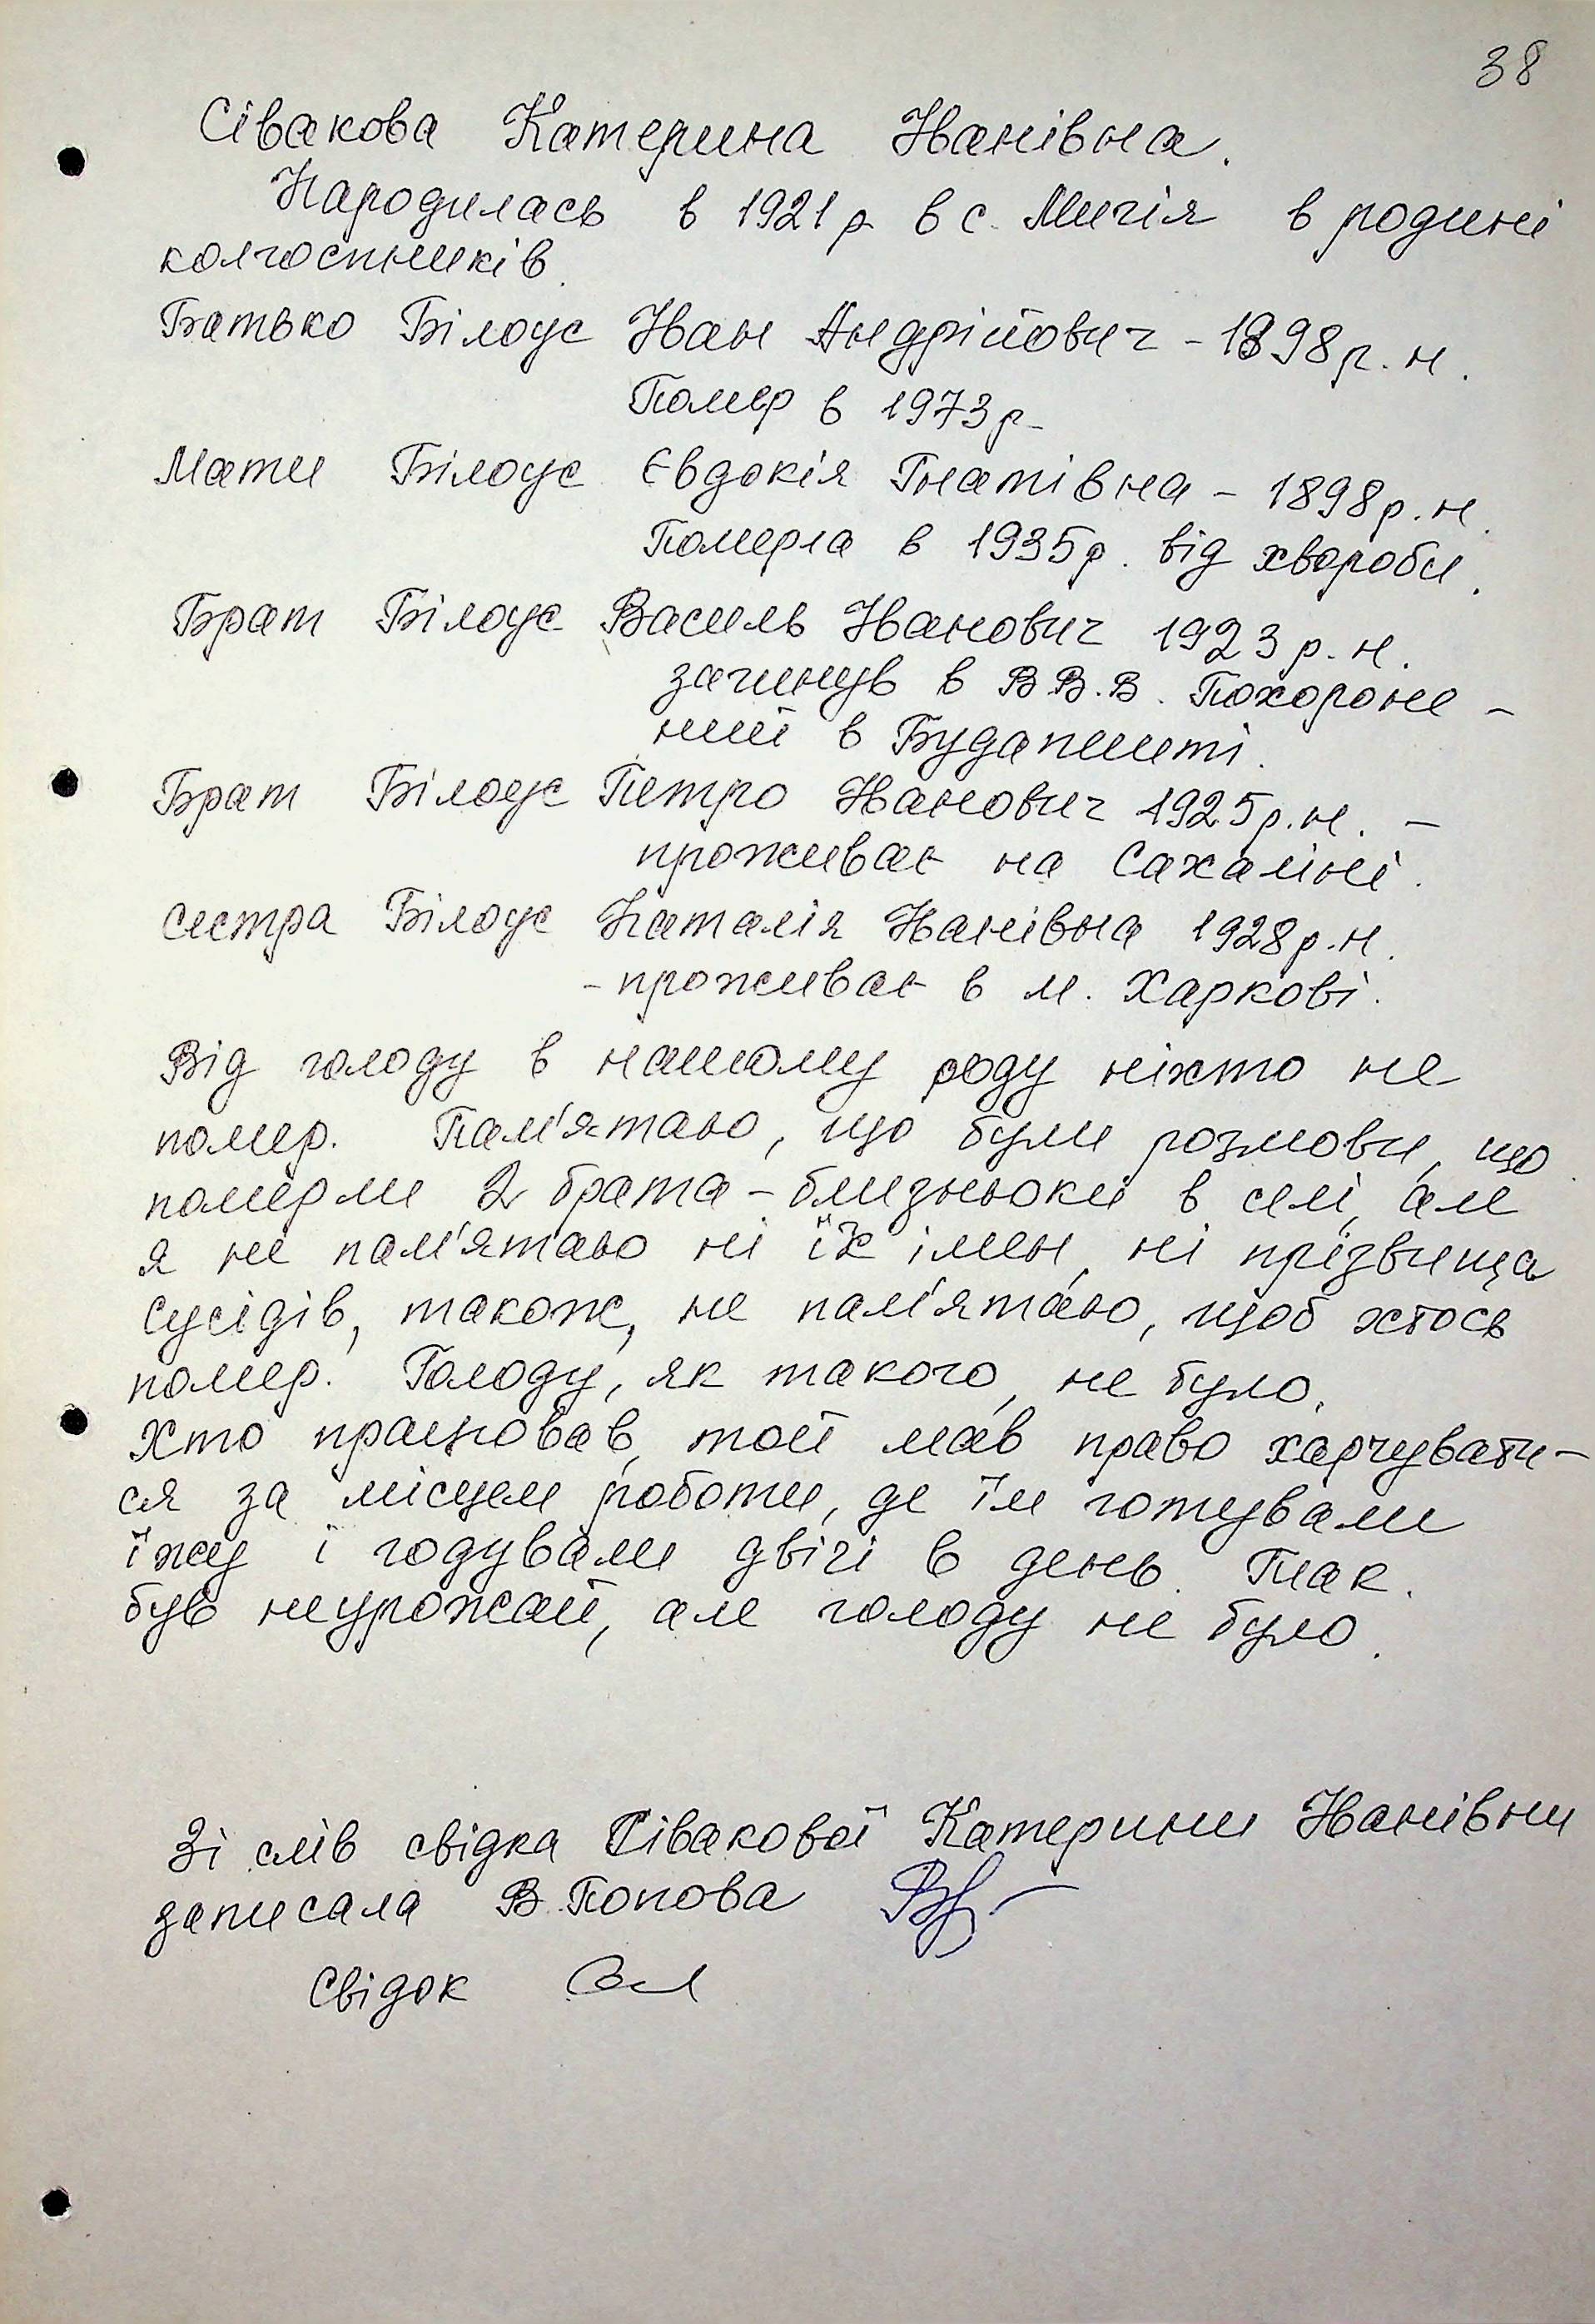 38
Сівакова Катерина Іванівна.
Народилась в 1921р в с. Мигія в родині
колгоспників.
Батько Білоус Іван Андрійович - 1898р.н.
Помер в 1973р.
Мати Білоус Євдокія Гнатівна - 1898р.н.
Померла в 1935р. від хвороби.
Брат Білоус Василь Іванович 1923р.н.
загинув в В.В.В. Похороне-
ний в Будапешті.
Брат Білоус Петро Іванович 1925р.н. -
проживає на Сахаліні.
сестра Білоус Наталія Іванівна 1928р.н.
- проживає в м. Харкові.
Від голоду в нашому роду ніхто не
помер. Пам'ятаю, що були розмови, що
померли 2 брата-близнюки в селі, але
я не пам'ятаю ні їх імен, ні прізвища
Сусідів, також, не пам'ятаю, щоб хтось
помер. Голоду, як такого, не було.
Хто працював, той мав право харчувати-
ся за місцем роботи, де їм готували
їжу і годували двічі в день. Так.
був неурожай, але голоду не було.
Зі слів свідка Сівакової Катерини Іванівни
записала В.Попова
Свідок